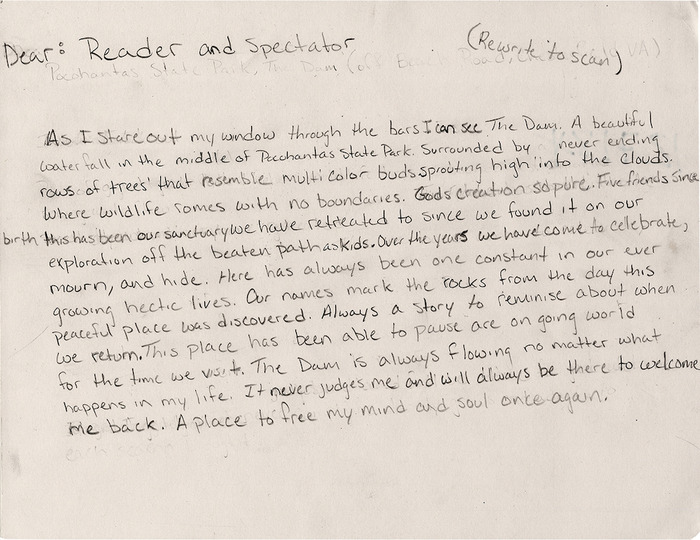 Dear: Reader and Spectator
(Rewrite to scan)
Pocohantas State Park, The Dam (off Beach Road, VA)
As I stare out my window through the bars I can see The Dam. A beautiful
waterfall in the middle of Pocohantas State Park. Surrounded by never ending
rows of trees that resemble multi color buds sprouting high into the clouds.
Where wildlife romes with no boundaries. Gods creation so pure. Five friends since
birth this has been our sanctuary we have retreated to since we found it on our
exploration off the beaten path as kids. Over the years we have come to celebrate,
mourn, and hide. Here has always been one constant in our ever
growing hectic lives. Our names mark the rocks from the day this
peaceful place was discovered. Always a story to reminise about when
we return. This place has been able to pause are on going world
for the time we visit. The Dam is always flowing no matter what
happens in my life. It never judges me and will always be there to welcome
me back. A place to free my mind and soul once again.
each